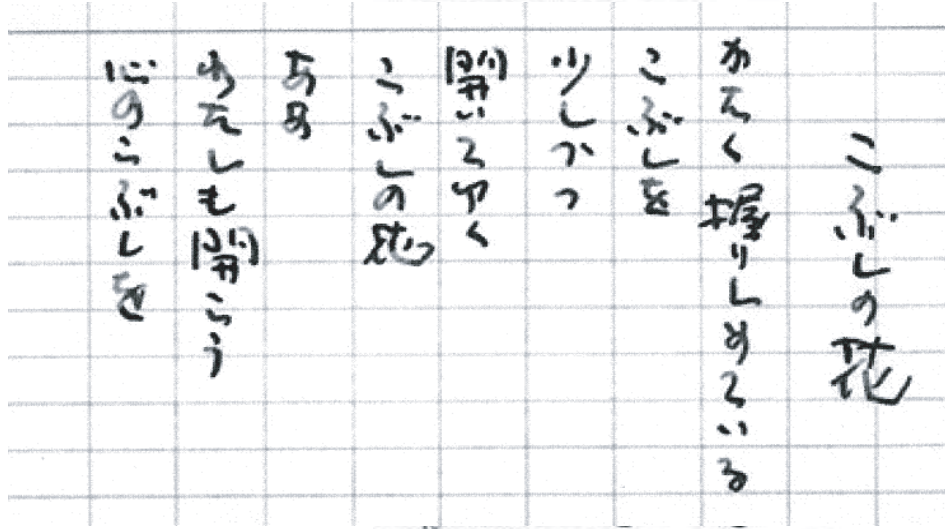 こぶしの花
かたく握りしめている
こぶしを
少しづつ
開いてゆく
こぶしの花
ああ
わたしも開こう
心のこぶしを